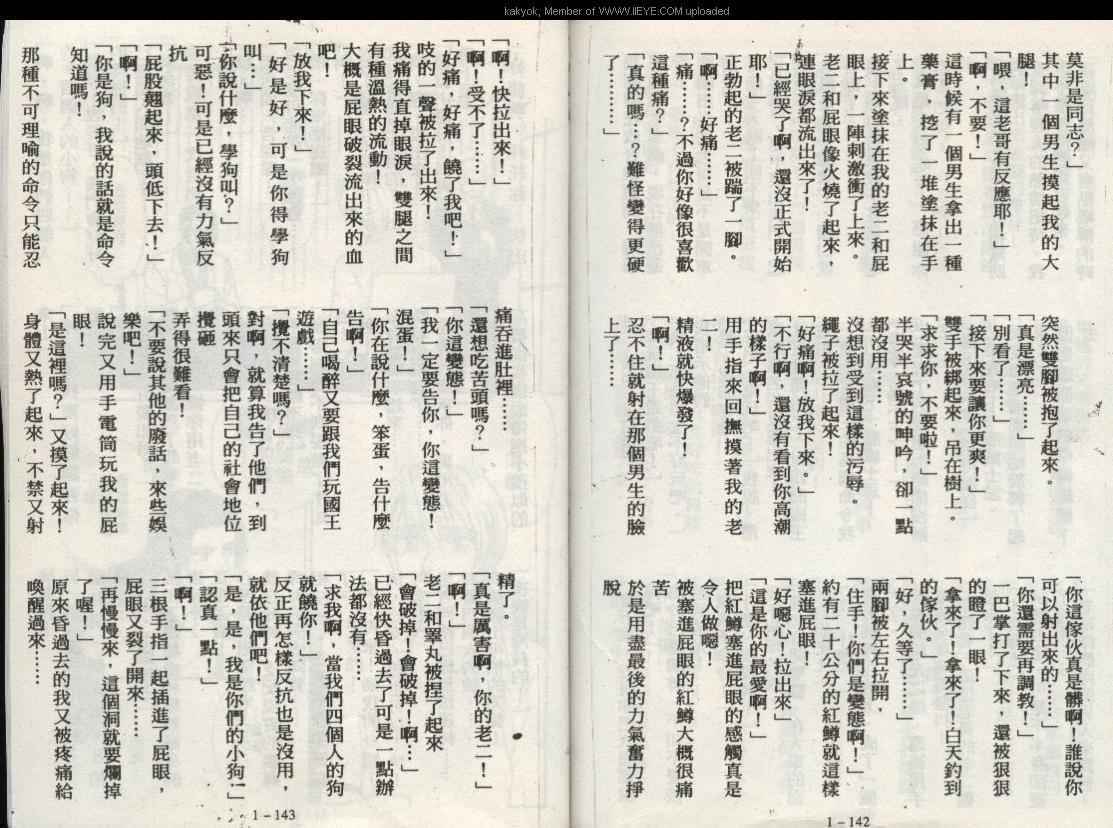 kakyok, Member of WWW.IIEYE.COM uploaded
莫非是同志？」
其中一個男生摸起我的大
腿！
「喂，這老哥有反應耶！」
「啊，不要！」
這時候有一個男生拿出一種
藥膏，挖了一堆塗抹在手
上。
接下來塗抹在我的老二和屁
眼上，一陣刺激衝了上來。
老二和屁眼像火燒了起來，
連眼淚都流出來了！
「已經哭了啊，還沒正式開始
耶！」
正勃起的老二被踹了一腳。
「啊……好痛……」
「痛……？不過你好像很喜歡
這種痛？」
「真的嗎…？難怪變得更硬
了…………」
突然雙腳被抱了起來。
「真是漂亮……」
「別看了……」
「接下來要讓你更爽！」
雙手被綁起來，吊在樹上。
「求求你，不要啦！」
半哭半哀號的呻吟，卻一點
都沒用……
沒想到受到這樣的污辱。
繩子被拉了起來！
「好痛啊！放我下來。」
「不行啊，還沒有看到你高潮
的樣子啊！」
用手指來回撫摸著我的老
二！
精液就快爆發了！
「啊！」
忍不住就射在那個男生的臉
上了……
「你這傢伙真是髒啊！誰說你
可以射出來的……」
「你還需要再調教！」
一巴掌打了下來，還被狠狠
的瞪了一眼！
「拿來了！拿來了！白天釣到
的傢伙。」
「好，久等了……」
兩腳被左右拉開，
「住手！你們是變態啊！」
約有二十公分的紅鱒就這樣
塞進屁眼！
「好噁心！拉出來」
「這是你的最愛啊！」
把紅鱒塞進屁眼的感觸真是
令人做噁！
被塞進屁眼的紅鱒大概很痛
苦
於是用盡最後的力氣奮力掙
脫
1－142
「啊！快拉出來！」
「啊！受不了……」
「好痛，好痛，饒了我吧！」
吱的一聲被拉了出來！
我痛得直掉眼淚，雙腿之間
有種溫熱的流動！
大概是屁眼破裂流出來的血
吧！
「放我下來！」
「好是好，可是你得學狗
叫…」
「你說什麼，學狗叫？」
可惡！可是已經沒有力氣反
抗
「屁股翹起來，頭低下去！」
「啊！」
「你是狗，我說的話就是命令
知道嗎！
那種不可理喻的命令只能忍
痛吞進肚裡……
「還想吃苦頭嗎？」
「你這變態！」
「我一定要告你，你這變態！
混蛋！」
「你在說什麼，笨蛋，告什麼
告啊！」
「自己喝醉又要跟我們玩國王
遊戲……」
「攪不清楚嗎？」
對啊，就算我告了他們，到
頭來只會把自己的社會地位
攪砸
弄得很難看！
「不要說其他的廢話，來些娛
樂吧！」
說完又用手電筒玩我的屁
眼！
「是這裡嗎？」又摸了起來！
身體又熱了起來，不禁又射
精了。
「真是厲害啊，你的老二！」
「啊！」
老二和睪丸被捏了起來
「會破掉！會破掉！啊…」
已經快昏過去了可是一點辦
法都沒有……
「求我啊，當我們四個人的狗
就饒你！」
反正再怎樣反抗也是沒用，
就依他們吧！
「是，是，我是你們的小狗」
「認真一點！」
「啊！」
三根手指一起插進了屁眼，
屁眼又裂了開來……
「再慢慢來，這個洞就要爛掉
了喔！」
原來昏過去的我又被疼痛給
喚醒過來……
1－143